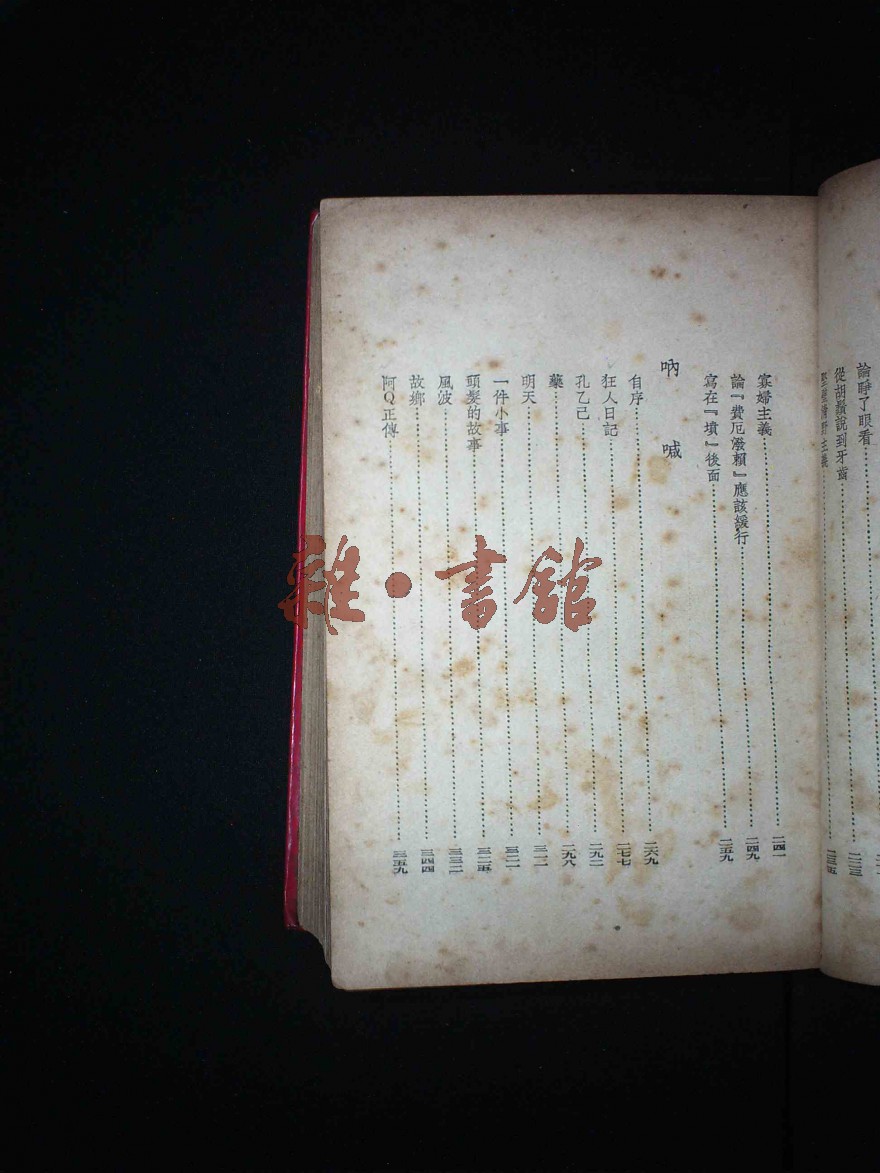 論睜了眼看
從胡鬚說到牙齒 二二三
寡婦主義 二四一
論『費厄潑賴』應該緩行 二四九
寫在『墳』後面 二五九
吶喊
自序 二六九
狂人日記 二七七
孔乙己 二九二
藥 二九八
明天
一件小事
頭髮的故事 三二五
風波 三三二
故鄉 三四四
阿Q正傳 三五九
雜·書館